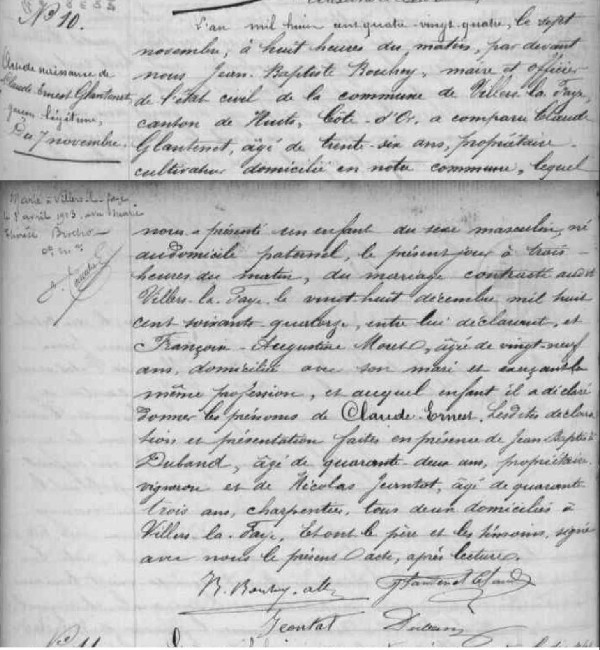 N° 10.
Acte de naissance de
Claude Ernest Glantenet,
garçon légitime,
Du 7 novembre.
L'an mil huit cent quatre-vingt-quatre, le sept
novembre, à huit heures du matin, par devant
nous Jean-Baptiste Bouhey, maire et officier
de l'état civil de la commune de Villers-la-Faye,
canton de Nuits, Côte-d'Or, a comparu Claude
Glantenet, âgé de trente-six ans, propriétaire-
cultivateur domicilié en notre commune, lequel
Marié à Villers-la-faye
le 8 avril 1913, avec Marie
nous a présenté un enfant du sexe masculin, né
au domicile paternel, le présent jour à trois
heures du matin, du mariage contracté audit
Villers-la-Faye le vingt huit décembre mil huit
cent soixante-quatorze, entre lui déclarant, et
Françoise-Augustine, âgée de vingt-neuf
ans, domiciliée avec son mari et exerçant la
même profession, et auquel enfant il a déclaré
donner les prénoms de Claude-Ernest. Lesdites déclara
tions et présentation faites en présence de Jean-Baptiste
Duband, âgé de quarante-deux ans, propriétaire
vigneron et de Nicolas Jeantot, âgé de quarante
trois ans, charpentier, tous deux domiciliés à
Villers-la-Faye, Et ont le père et les témoins, signé
avec nous le présent acte, après lecture.
B. Bouhey Glantenet Claude
Jeantot Duband